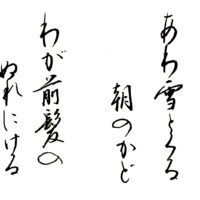 あわ雪とくる
朝のかど
わが前髪の
ぬれにける